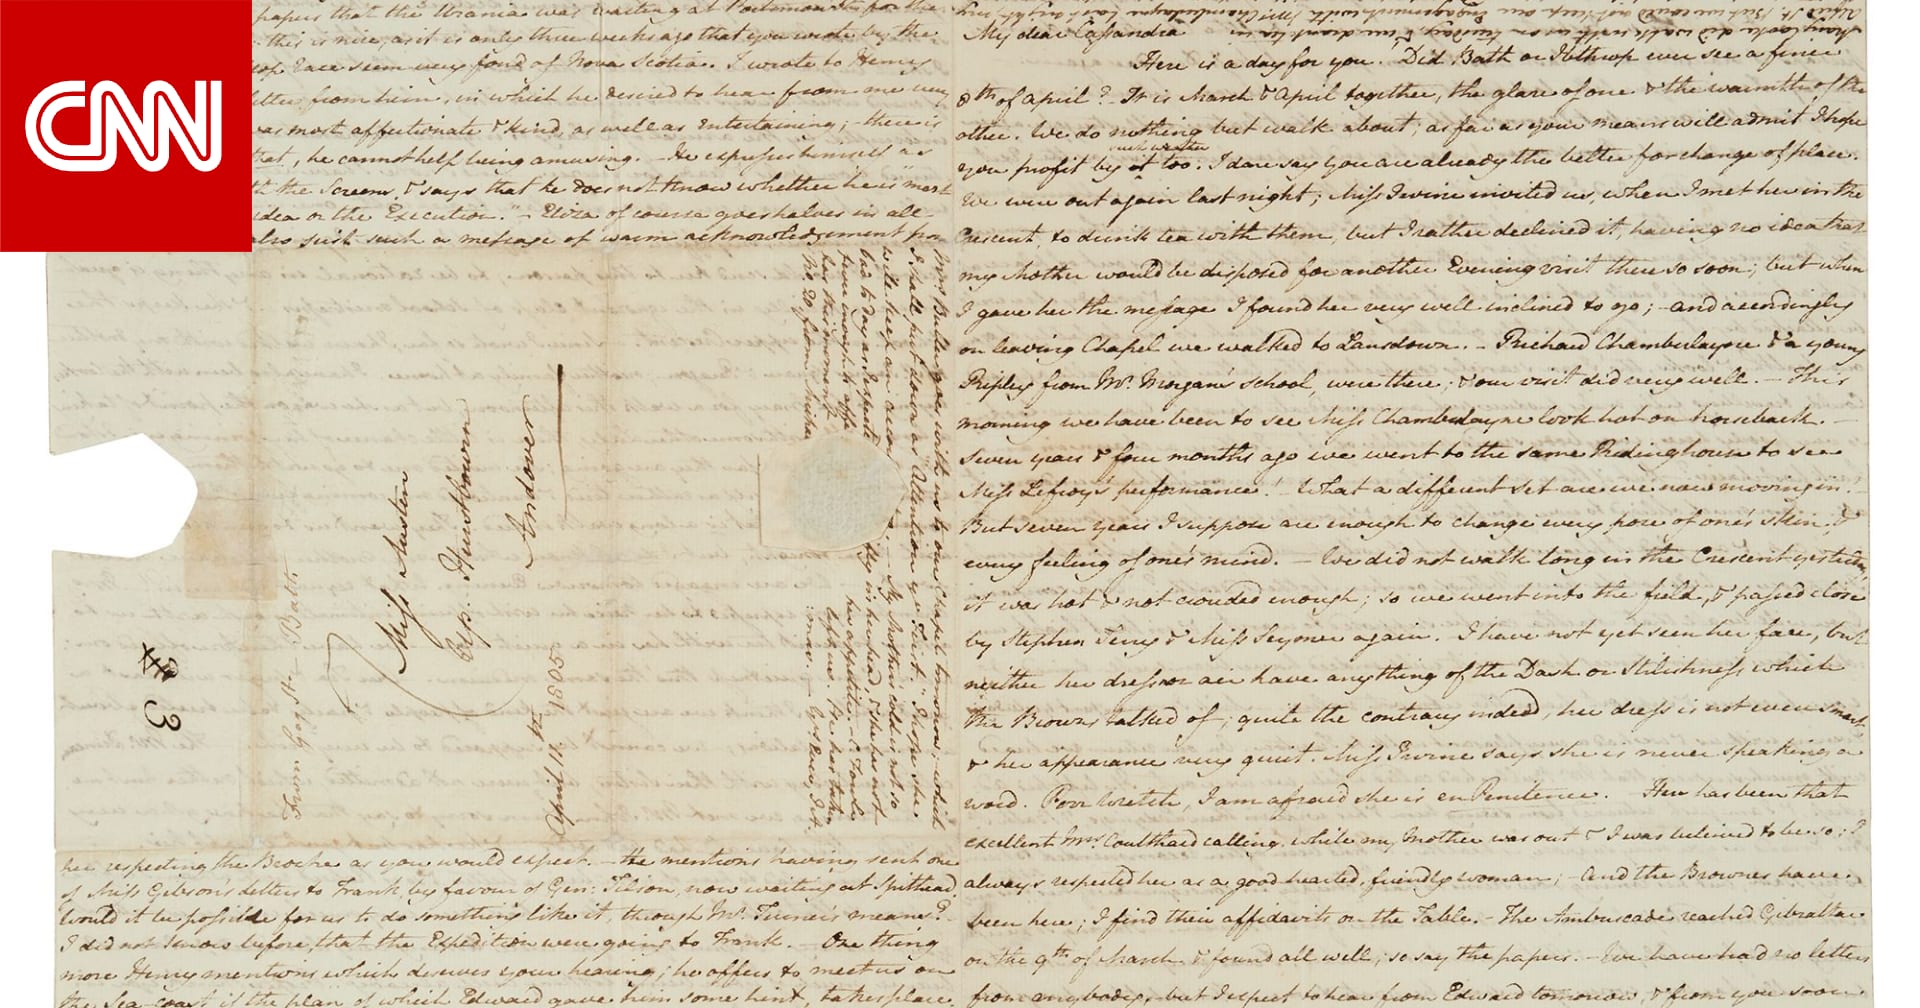 CNN
papers that the Urania was waiting at Portsmouth for the
this is nice, as it is only three weeks ago that you wrote by the
race seem very fond of Nova Scotia. I wrote to Henry
letter from him, in which he desired to hear from me very
was most affectionate & kind, as well as entertaining; – there is
that, he cannot help being amusing. – He expresses himself as
the Screen, & says that he does not know whether he is most
idea or the Execution." – Eliza of course goes halves in all
also just such a message of warm acknowledgement from
Miss Austen
Hurstbourn
Andover
From Gay St. – Bath
April 11th 1805
3
Mrs. Buller goes with us to our Chapel tomorrow; which
I shall put down as Attention ye First. I hope she
will keep an account
My Mother's cold is not so
her respecting the Broche as you would expect. – He mentions having sent one
of Miss Gibson's Letters to Frank, by favour of Gen: Tilson, now waiting at Spithead.
Would it be possible for us to do something like it, through Mr. Turner's means?
I did not know before, that the Expedition were going to Frank. – One thing
more Henry mentions which deserves your hearing; he offers to meet us on
the Sea-coast if the plan of which Edward gave him some hint, takes place.
My dear Cassandra
Here is a day for you. Did Bath or Ibthrop ever see a finer
8th of April? – It is March & April together, the glare of one & the warmth of the
other. We do nothing but walk about; as far as your means will admit I hope
you profit by such weather too. I dare say you are already the better for change of place.
We were out again last night; Miss Irvine invited us, when I met her in the
Crescent, to drink tea with them, but I rather declined it, having no idea that
my Mother would be disposed for another Evening visit there so soon; but when
I gave her the message I found her very well inclined to go; – and accordingly
on leaving Chapel we walked to Lansdown. – Richard Chamberlayne & a young
Ripley from Mr. Morgan's school, were there; & our visit did very well. – This
morning we have been to see Miss Chamberlayne look hot on horseback. –
Seven years & four months ago we went to the same Ridinghouse to see
Miss Lefroy's performance! – What a different set are we now moving in! –
But seven years I suppose are enough to change every pore of one's skin, &
every feeling of one's mind. – We did not walk long in the Crescent yesterday,
it was hot & not crouded enough; so we went into the field, & passed close
by Stephen Terry & Miss Seymer again. – I have not yet seen her face, but
neither her dress or air have anything of the Dash or Stilishness which
the Browns talked of; quite the contrary indeed, her dress is not even smart,
& her appearance very quiet. Miss Irvine says she is never speaking a
word. Poor Wretch, I am afraid she is en Penitence. – Here has been that
excellent Mrs. Coulthard calling, while my Mother was out & I was beleived to be so; I
always respected her as a good hearted, friendly woman; – And the Brownes have
been here; I find their affidavits on the Table. – The Ambuscade reached Gibraltar
on the 9th of March & found all well; so say the papers. – We have had no letters
from anybody, – but I expect to hear from Edward tomorrow, & from you soon